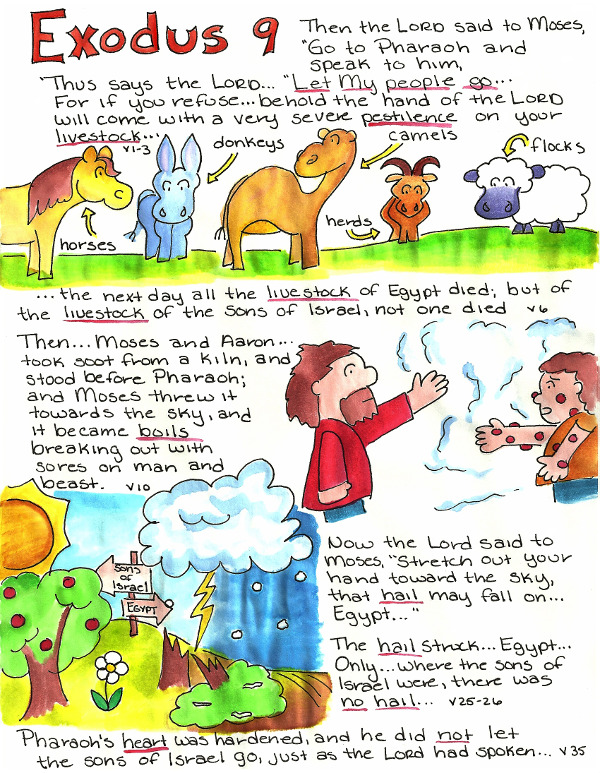 Exodus 9
Then the LORD said to Moses,
"Go to Pharaoh and
speak to him,
"Thus says the LORD... "Let My people go...
For if you refuse... behold the hand of the LORD
will come with a very severe pestilence on your
livestock...
v1-3
donkeys
camels
flocks
horses
herds
...the next day all the livestock of Egypt died; but of
the livestock of the sons of Israel, not one died v6
Then... Moses and Aaron...
took soot from a kiln, and
stood before Pharaoh;
and Moses threw it
towards the sky, and
it became boils
breaking out with
sores on man and
beast. v10
Sons
of
Israel
EGYPT
Now the Lord said to
Moses, "Stretch out your
hand toward the sky,
that hail may fall on...
Egypt..."
The hail struck... Egypt...
Only... where the sons of
Israel were, there was
no hail... v25-26
Pharaoh's heart was hardened, and he did not let
the sons of Israel go, just as the Lord had spoken... v35